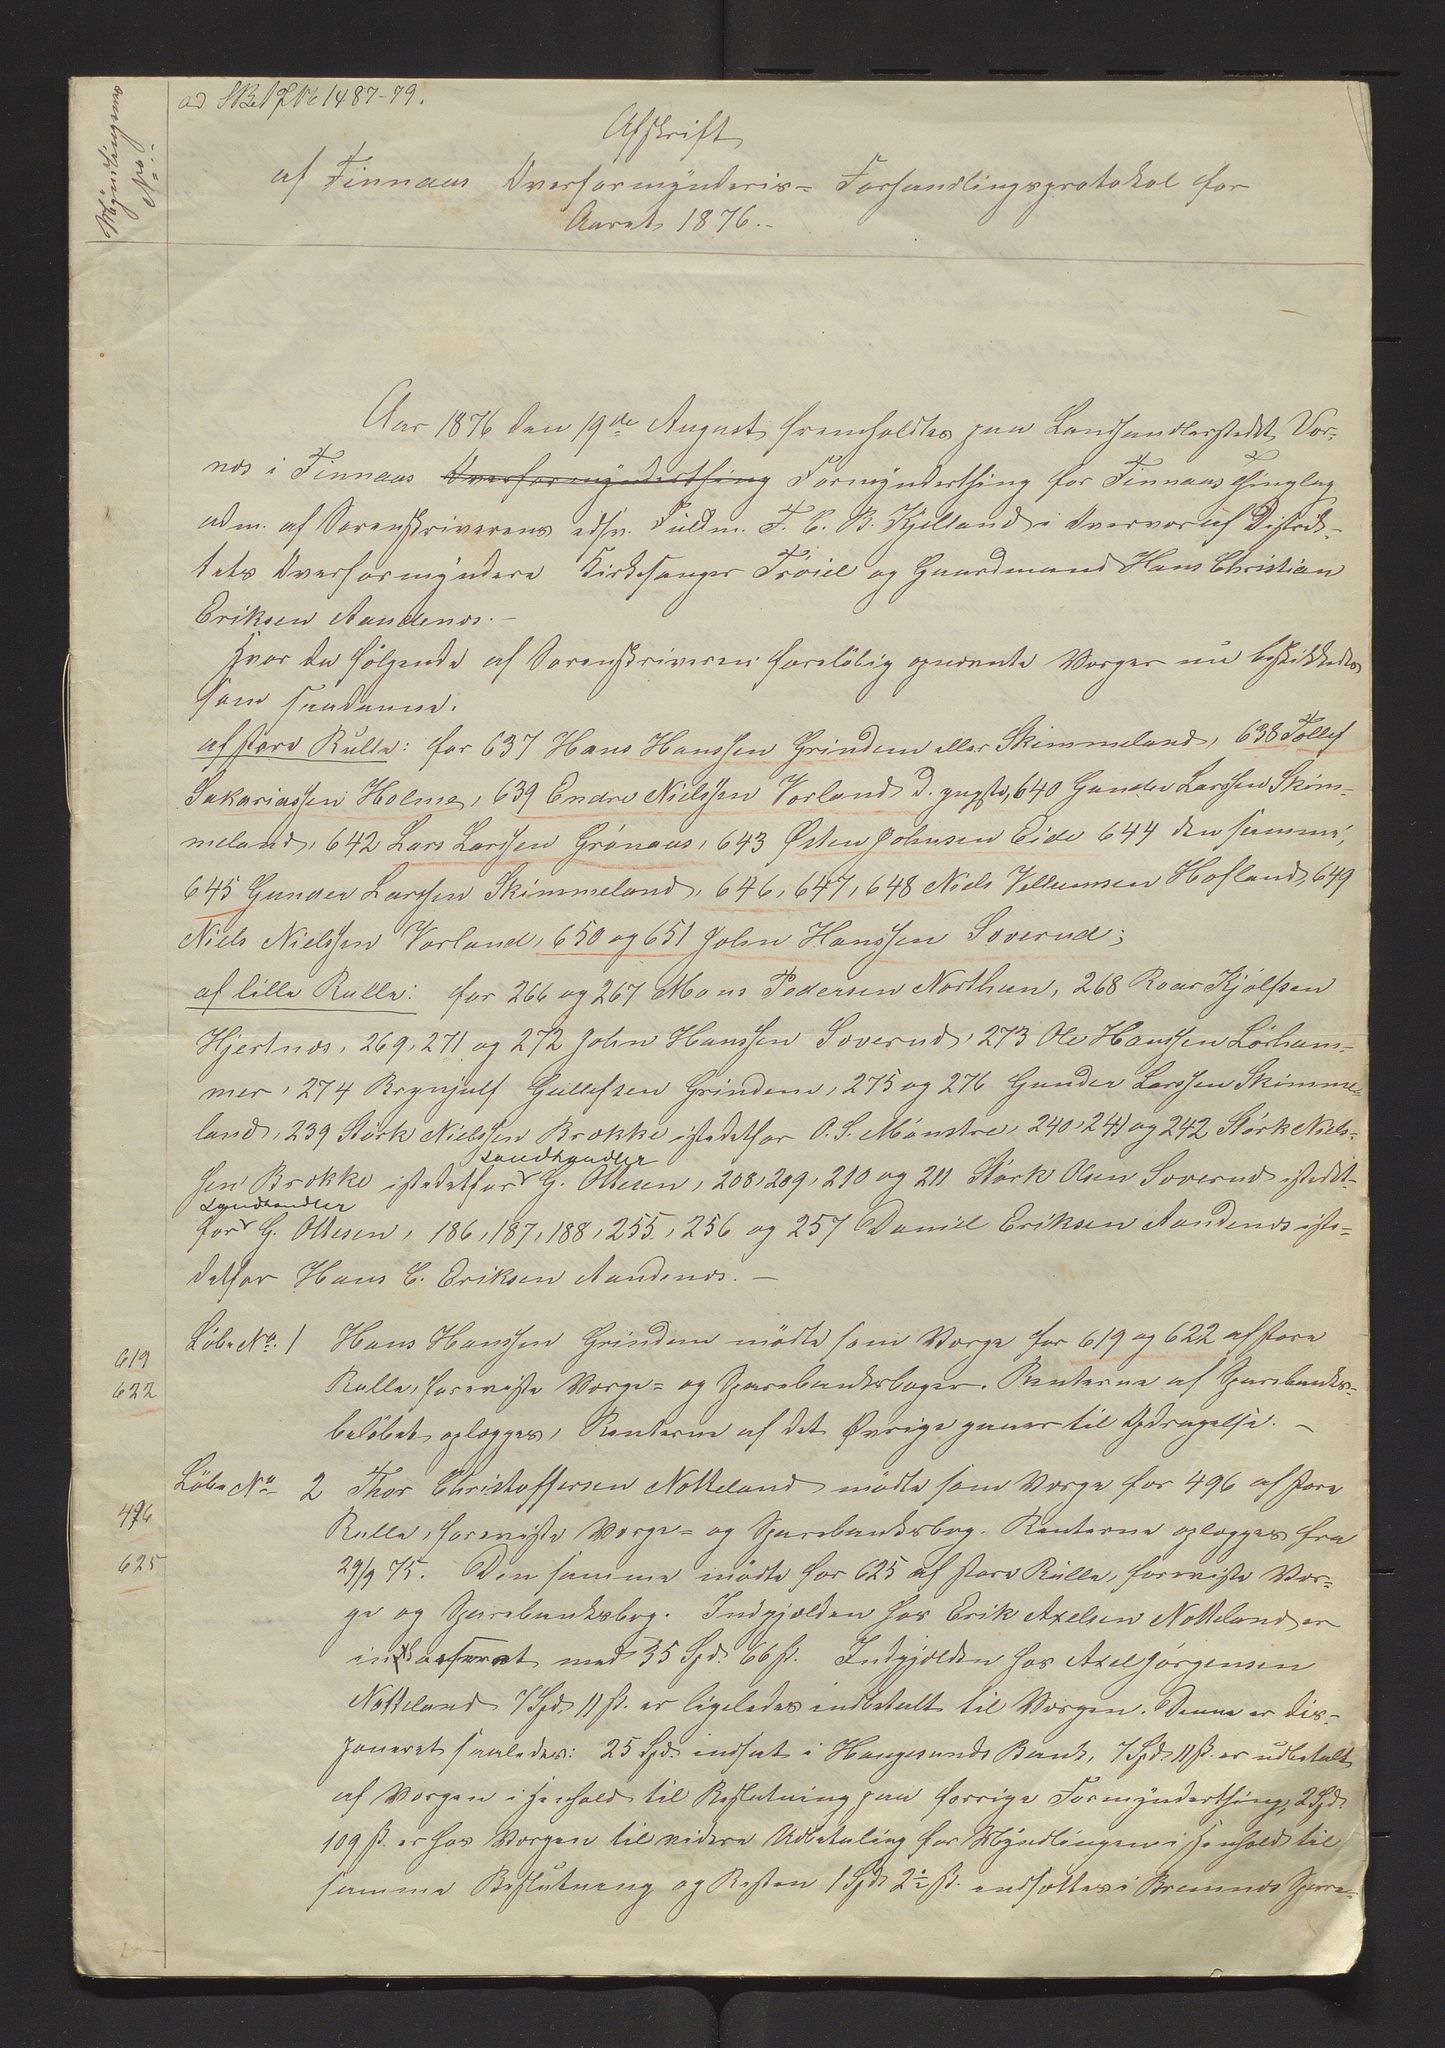 ad S.B. J.No 1487-79.
Myndlingens
No:
Afskrift
af Finnaas Overformynderies- Forhandlingsprotokol for
Aaret 1876.-
Aar 1876 den 19de August fremholdtes paa Landhandlerstedet Vor-
næs i Finnaas Overformynderthing Formynderthing for Finnaas Thinglag
adm. af Sorenskriverens edsv. Fuldm. F. C. B. Kjelland i Overvær af Distrik-
tets Overformyndere Kirkesanger Trøiel og Gaardmand Hans Christian
Eriksen Aandenæs.-
Hvor da følgende af Sorenskriveren foreløbig opnævnte Værger nu beskikkedes
som saadanne.
af store Rulle: for 637 Hans Hanssen Grindem eller Skimmeland, 638 Tollef
Sakariassen Holme, 639 Endre Nielssen Vorland d. yngste, 640 Gunder Larssen Skim-
meland, 642 Lars Larssen Grønaas, 643 Østen Johnsen Eide 644 den samme,
645 Gunder Larssen Skimmeland, 646, 647, 648 Niels Villumsen Hofland, 649
Niels Nielssen Vorland, 650 og 651 John Hanssen Soverud;
af lille Rulle: for 266 og 267 Mons Pedersen Northun, 268 Roar Kjølssen
Hjertnæs, 269, 271 og 272 John Hanssen Soverud, 273 Ole Hanssen Lørham-
mer, 274 Brynjulf Gullefsen Grindem, 275 og 276 Gunder Larssen Skimme-
land, 239 Størk Nielssen Brokke istedetfor O. S. Mønstre, 240, 241 og 242 Størk Niels-
sen Brokke istedetfor Landhandler G. Ottesen, 208, 209, 210 og 211 Størk Olsen Soverud istedet-
for Landhandler G. Ottesen, 186, 187, 188, 255, 256 og 257 Daniel Eriksen Aandenæs iste-
detfor Hans C. Eriksen Aandenæs.-
Løbe No. 1 Hans Hanssen Grindem mødte som Værge for 619 og 622 af store
619
622
Rulle, foreviste Værge- og Sparebanksbøger. Renterne af Sparebanks-
beløbet oplægges, Renterne af det Øvrige gaaer til Opdragelse.-
Løbe No 2 Thor Christoffersen Notteland mødte som Værge for 496 af store
496
Rulle, foreviste Værge- og Sparebanksbog. Renterne oplægges fra
625
29/9 75. Den samme mødte for 625 af store Rulle, foreviste Vær-
ge og Sparebanksbog. Indgjælden hos Erik Axelsen Notteland er
inkasseret med 35 Spd. 66 ß. Indgjælden hos Axel Jørgensen
Notteland 7 Spd. 11 ß. er ligeledes indbetalt til Værgen. Denne er dis-
poneret saaledes: 25 Spd. indsat i Haugesunds Bank, 7 Spd. 11 ß. er udbetalt
af Værgen i Henhold til Beslutning paa forrige Formynderthing, 2 Spd.
109 ß. er hos Værgen til videre Udbetaling for Myndlingen i Henhold til
samme Beslutning og Resten 1 Spd. 2½ ß. indsættes i Bremnæs Spare-